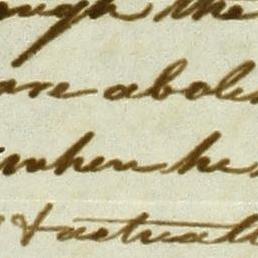 ough the
are abole
when he
& actuall